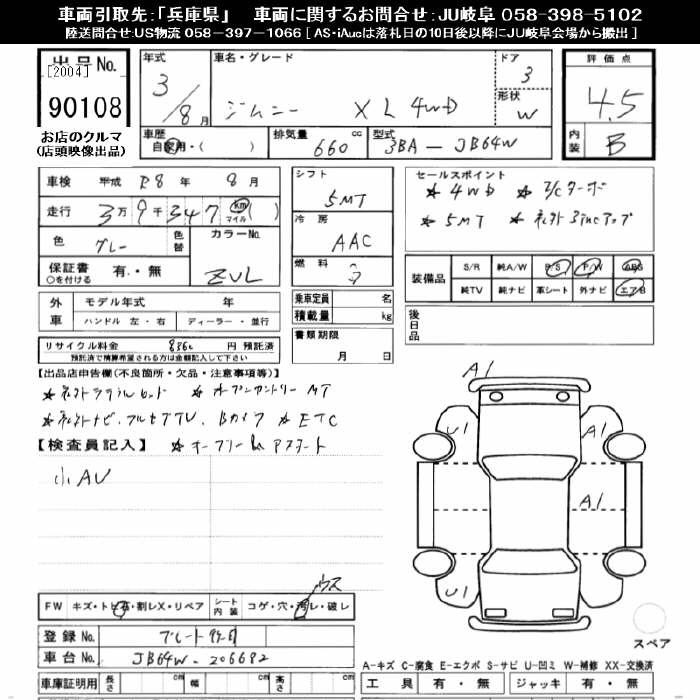 車両引取先:「兵庫県」 車両に関するお問合せ:JU岐阜 058-398-5102
陸送問合せ:US物流 058-397-1066 [ AS・iAucは落札日の10日後以降にJU岐阜会場から搬出 ]
出品No.
[2004]
90108
お店のクルマ
(店頭映像出品)
年式 3/8月
車名・グレード ジムニー XL 4WD
ドア 3
形状 W
評価点 4.5
内装 B
車歴 自家用・( )
排気量 660 cc
型式 3BA-JB64W
車検 平成 R8年 8月
走行 3万9千347 km マイル ( )
色 グレー 色替
カラーNo. ZVL
保証書 ○を付ける 有・無
シフト 5MT
冷房 AAC
燃料
乗車定員 名
積載量 kg
書類期限 月 日
セールスポイント
★4WD ★I/Cターボ
★5MT
装備品 S/R 純A/W P/S P/W ABS
純TV 純ナビ 革シート 外ナビ エアB
後日品
外車 モデル年式 年
ハンドル 左・右 ディーラー・並行
リサイクル料金 円 預託済
預託済で精算希望される方は金額記入して下さい
【出品店申告欄(不良箇所・欠品・注意事項等)】
★オープンカントリー MT
フルセグTV、Bカメラ ★ETC
【検査員記入】
小AU
FW キズ・トビ石・割レX・リペア
シート内装 コゲ・穴・汚レ・破レ
ウス
登録No.
車台No. JB64W-206692
車庫証明用 長さ cm 幅 cm 高さ cm
A1
U1
A1
A1
U1
スペア
A-キズ C-腐食 E-エクボ S-サビ U-凹ミ W-補修 XX-交換済
工具 有・無 ジャッキ 有・無